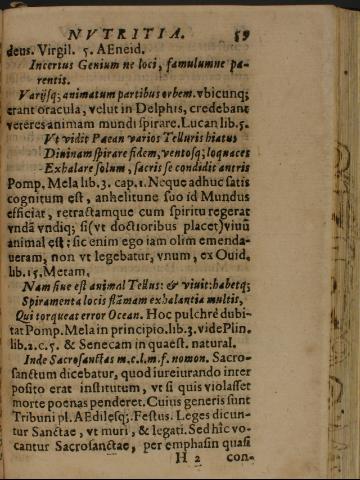 NVTRITIA. 59
deus. Virgil. 5. AEneid.
Incertus Genium ne loci, famulumne pa-
rentis.
Varijsq; animatum partibus orbem. vbicunq;
erant oracula, velut in Delphis, credebant
veteres animam mundi spirare. Lucan lib. 5.
Vt vidit Pæan varios Telluris hiatus
Diuinam spirare fidem, ventosq; loquaces
Exhalare solum, sacris se condidit antris
Pomp. Mela lib. 3. cap. 1. Neque adhuc satis
cognitum est, anhelitune suo id Mundus
efficiat, retractamque cum spiritu regerat
vndā vndiq; si (vt doctoribus placet) viuū
animal est: sic enim ego iam olim emenda-
ueram, non vt legebatur, vnum, ex Ouid.
lib. 15. Metam.
Nam siue est animal Tellus: & viuit: habetq;
Spiramenta locis flāmam exhalantia multis,
Qui torqueat error Ocean. Hoc pulchrè dubi-
tat Pomp. Mela in principio. lib. 3. vide Plin.
lib. 2. c. 5. & Senecam in quæst. natural.
Inde Sacrosanctas m.c.l.m.f. nomon. Sacro-
sanctum dicebatur, quod iureiurando inter
posito erat institutum, vt si quis violasset
morte pœnas penderet. Cuius generis sunt
Tribuni pl. AEdilesq;. Festus. Leges dicun-
tur Sanctae, vt muri, & legati. Sed hîc vo-
cantur Sacrosanctae, per emphasin quasi
H 2 con-